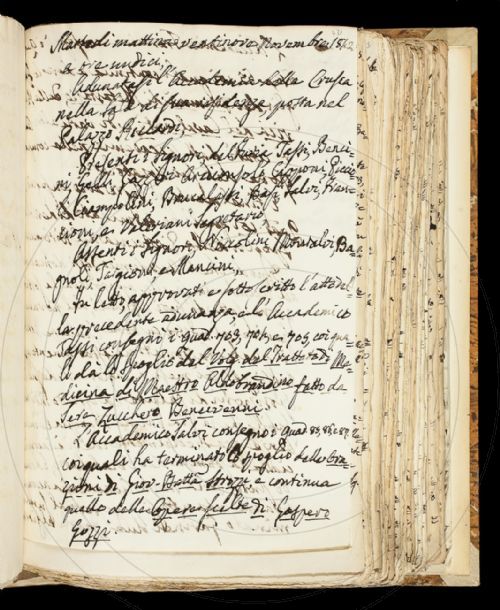 Martedì mattina ventinove Novembre 1842
a ore undici,
Adunatasi l'Accademia della Crusca
nella sua residenza, posta nel
Palazzo Riccardi,
Presenti i Signori del Furia, Tassi, Benci=
ni, Capponi, Becchi
Ciampolini, Brucalassi, Salvi, Fran=
cioni, e Valeriani Segretario
Assenti i Signori Niccolini, Montalvi, Ba=
gnoli, Targioni e Mancini,
Fu letto, approvato e sottoscritto l'atto del=
la precedente adunanza, e l'Accademico
Tassi consegnò i Quad. 703, 704, e 705, coi qua=
li dà lo spoglio del Volg. del Trattato di Me=
dicina di Maestro Aldobrandino fatto da
Sere Zucchero Bencivenni.
L'Accademico Salvi consegnò i Quad.
coi quali ha terminato lo spoglio delle Ora=
zioni di Giov. Batta Strozzi e continua
quello delle Opere scelte di Gaspero
Gozzi.